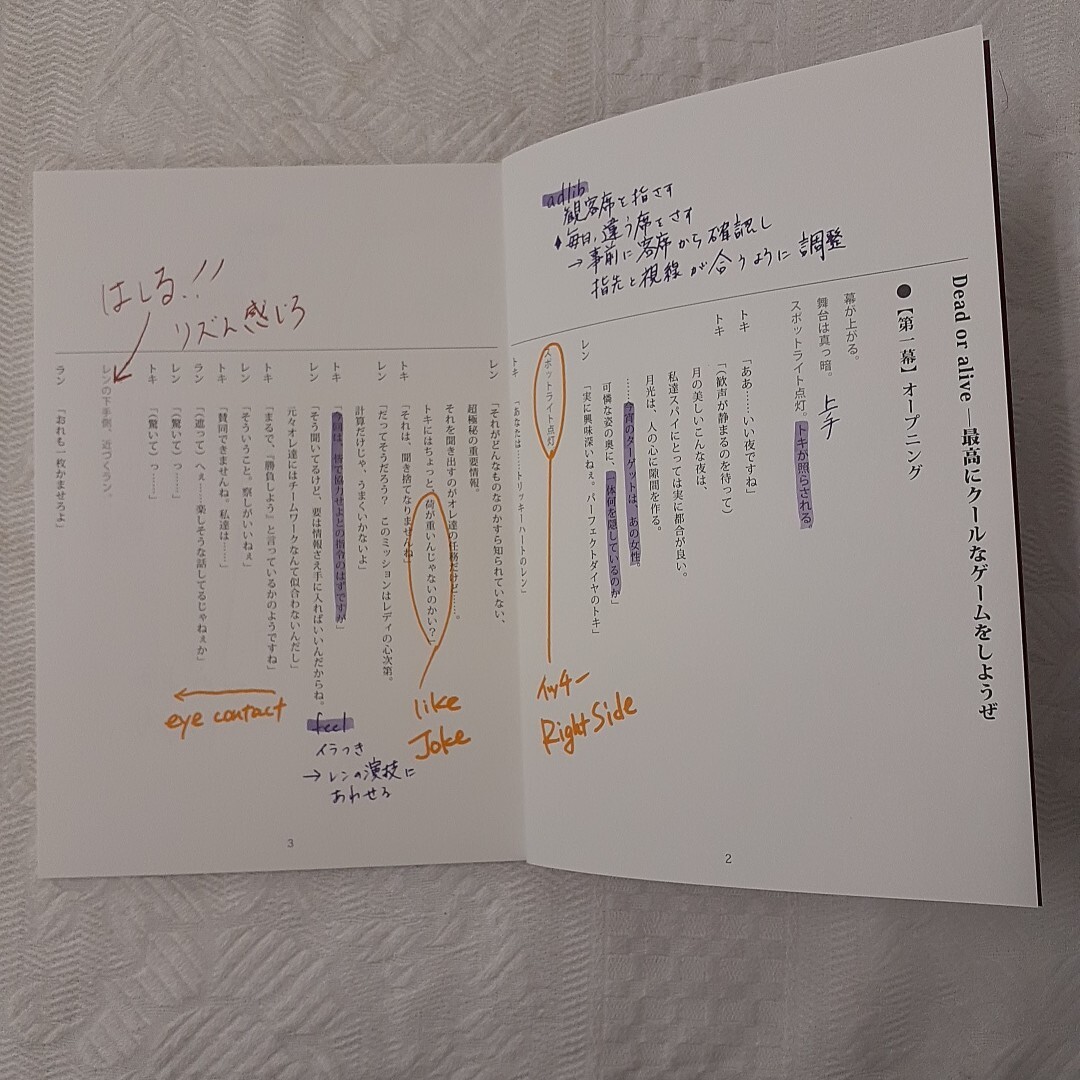 Dead or alive ―最高にクールなゲームをしようぜ
●【第一幕】オープニング
幕が上がる。
舞台は真っ暗。
上手
スポットライト点灯。トキが照らされる。
adlib
観客席を指さす
毎日、違う席をさす
→事前に客席から確認し
指先と視線が合うように調整
トキ 「ああ……いい夜ですね」
トキ 「(歓声が静まるのを待って)
月の美しいこんな夜は、
私達スパイにとっては実に都合が良い。
月光は、人の心に隙間を作る。
……今宵のターゲットは、あの女性。
可憐な姿の奥に、一体何を隠しているのか」
レン 「実に興味深いねぇ。パーフェクトダイヤのトキ」
スポットライト点灯
イッチー
Right Side
2
トキ 「あなたは……トリッキーハートのレン」
レン 「それがどんなものなのかすら知られていない、
超極秘の重要情報。
それを聞き出すのがオレ達の任務だけど……。
トキにはちょっと、荷が重いんじゃないのかい?」
like
Joke
トキ 「それは、聞き捨てなりませんね」
レン 「だってそうだろう? このミッションはレディの心次第。
計算だけじゃ、うまくいかないよ」
トキ 「今回は、皆で協力せよとの指令のはずですが」
feel
イラつき
→レンの演技に
あわせる
レン 「そう聞いてるけど、要は情報さえ手に入ればいいんだからね。
元々オレ達にはチームワークなんて似合わないんだし」
トキ 「まるで、「勝負しよう」と言っているかのようですね」
レン 「そういうこと。察しがいいねぇ」
トキ 「賛同できませんね。私達は……」
ラン 「(遮って)へぇ……楽しそうな話してるじゃねぇか」
レン 「(驚いて)っ……」
トキ 「(驚いて)っ……」
eye contact
はしる!!
リズム感じろ
レンの下手側、近づくラン。
ラン 「おれも一枚かませろよ」
3